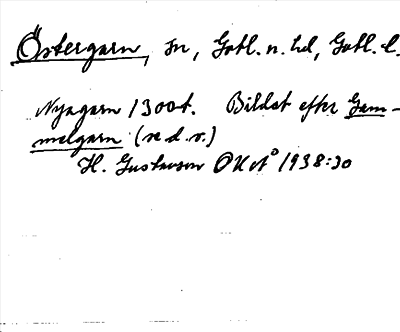 Östergarn, sn, Gotl. n. hd, Gotl. l.
Nygarn 1300t. Bildat efter Gam-
melgarn (se d. o.)
H. Gustavson OUÅ 1938:30